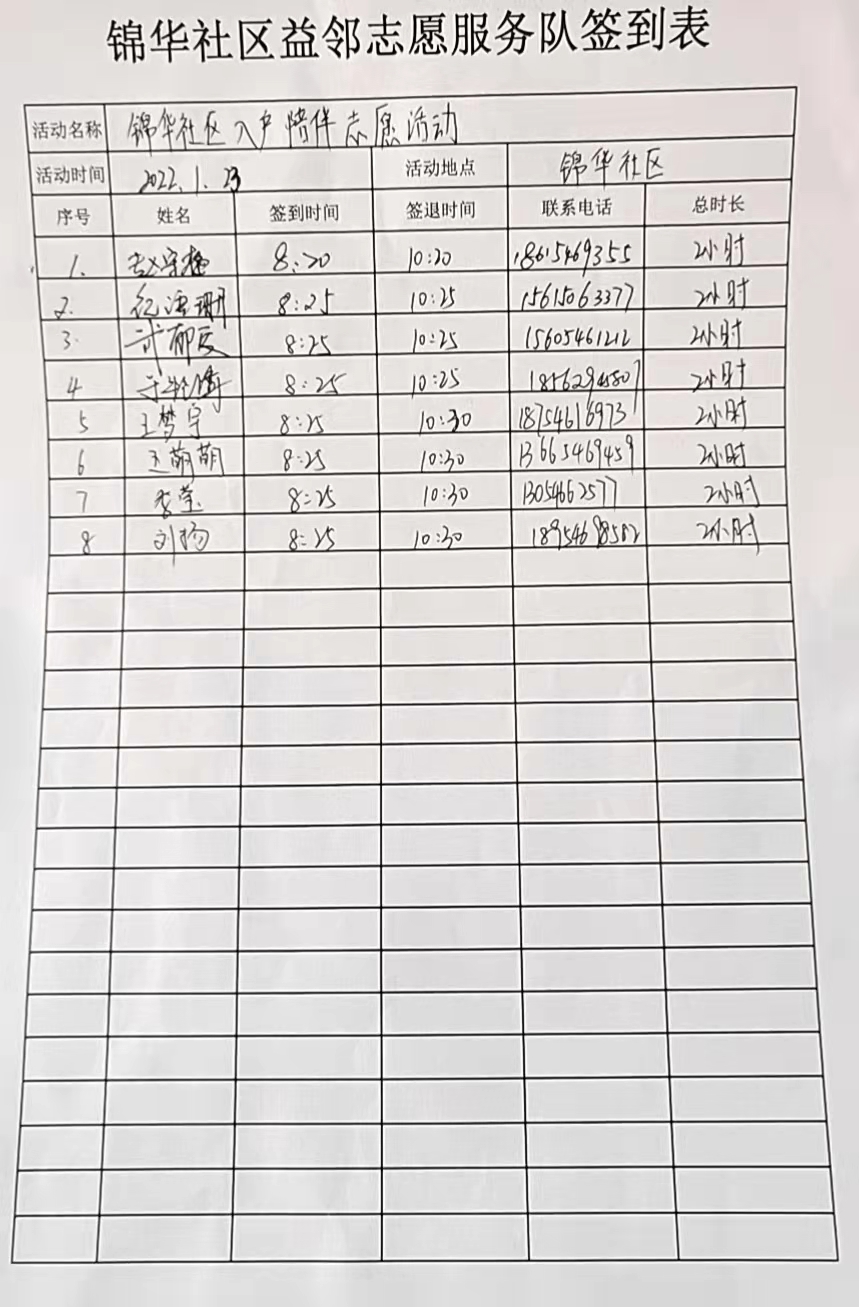 锦华社区益邻志愿服务队签到表
活动名称 锦华社区入户陪伴志愿活动
活动时间 2022.1.23 活动地点 锦华社区
序号 姓名 签到时间 签退时间 联系电话 总时长
1. 8:20 10:20 18615469355 2小时
2. 8:25 10:25 15615063377 2小时
3. 8:25 10:25 15605461212 2小时
4 8:25 10:25 2小时
5 王梦宁 8:25 10:30 18754616973 2小时
6 8:25 10:30 13665469459 2小时
7 李莹 8:25 10:30 13054662577 2小时
8 刘扬 8:25 10:30 18954698502 2小时